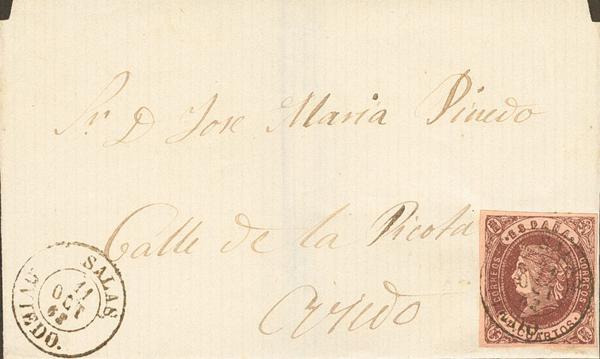 Sr. D. Jose Maria Pinedo
Calle de la Picota
Oviedo
SALAS
11
OCT
63
OVIEDO.
ESPAÑA
CORREOS
CORREOS
4 CUARTOS